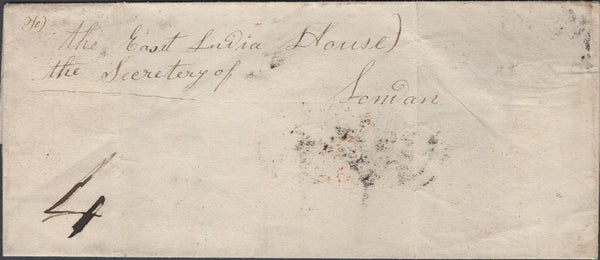 To)
the East India House)
the Secretery of
London
4